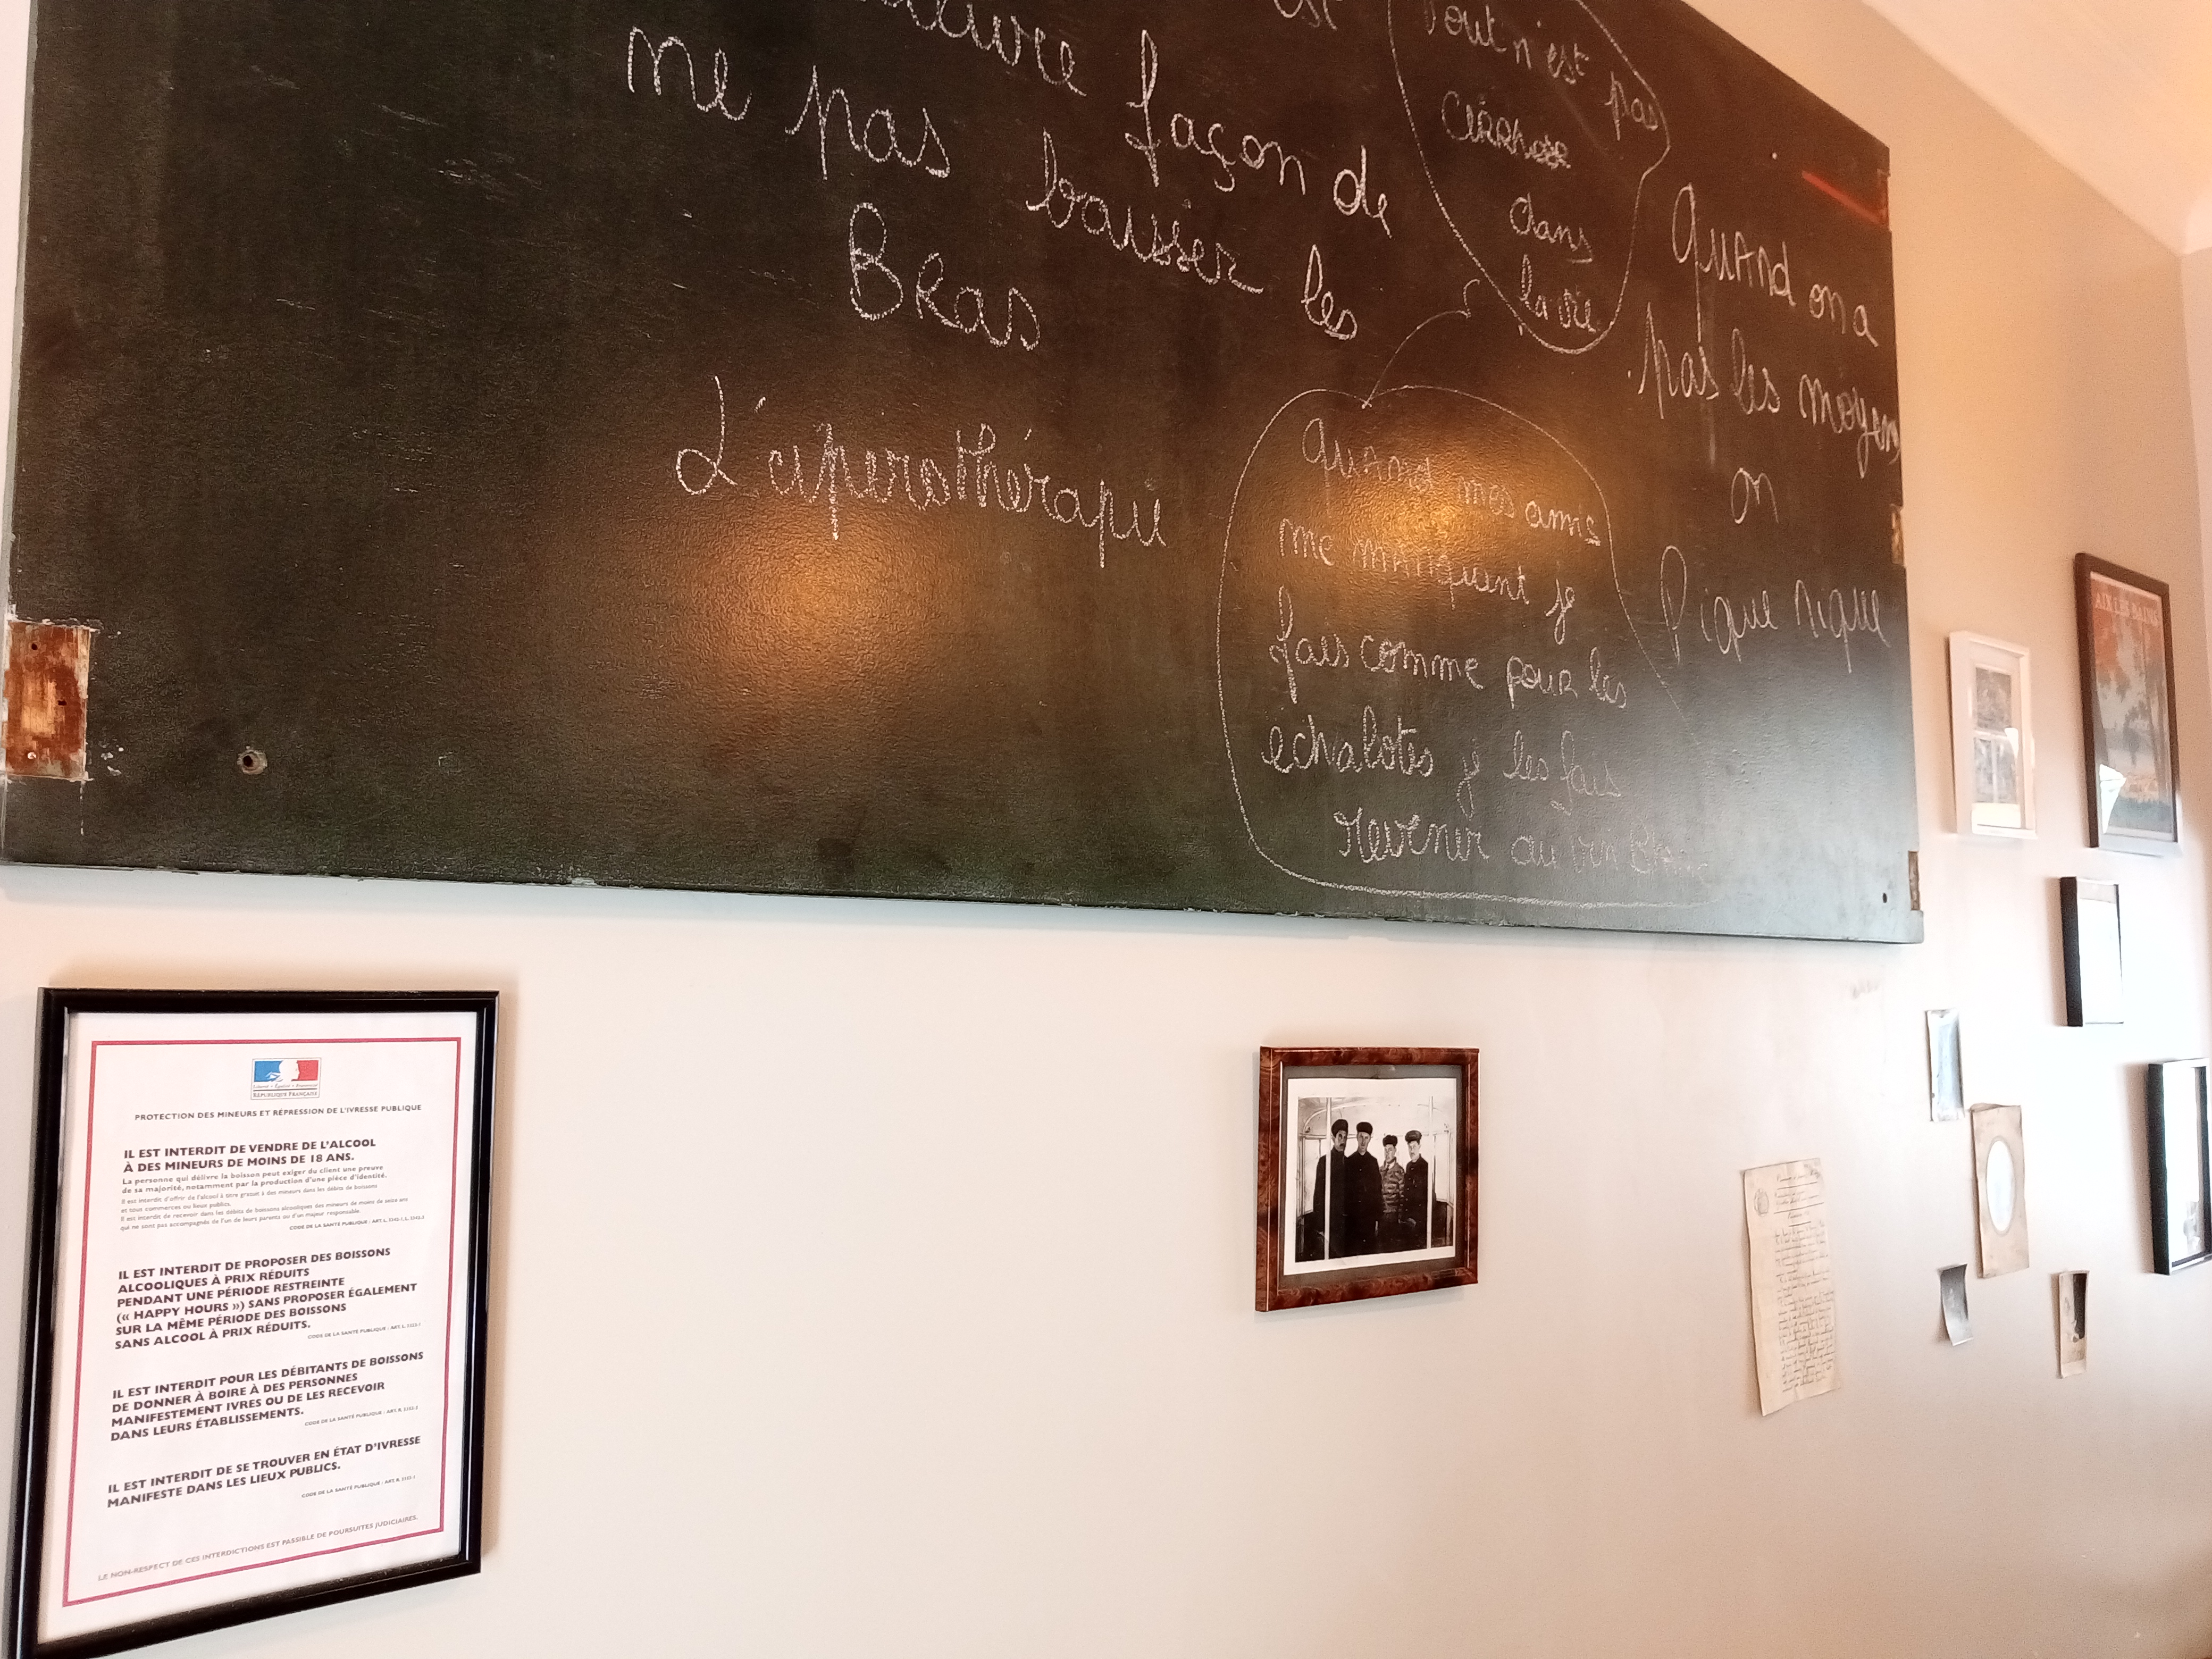 est
façon de
ne pas baisser les
Bras
L'aperothérapie
Tout n'est pas
dans
la vie
Quand on a
pas les moyens
on
Pique nique
Quand mes amis
me manquent je
fais comme pour les
echalotes je les fais
revenir au vin Blanc
AIX LES BAINS
Liberté • Égalité • Fraternité
RÉPUBLIQUE FRANÇAISE
PROTECTION DES MINEURS ET RÉPRESSION DE L'IVRESSE PUBLIQUE
IL EST INTERDIT DE VENDRE DE L'ALCOOL
À DES MINEURS DE MOINS DE 18 ANS.
La personne qui délivre la boisson peut exiger du client une preuve
de sa majorité, notamment par la production d'une pièce d'identité.
Il est interdit d'offrir de l'alcool à titre gratuit à des mineurs dans les débits de boissons
et tous commerces ou lieux publics.
Il est interdit de recevoir dans les débits de boissons alcooliques des mineurs de moins de seize ans
qui ne sont pas accompagnés de l'un de leurs parents ou d'un majeur responsable.
CODE DE LA SANTÉ PUBLIQUE : ART. L. 3342-1, L. 3342-3
IL EST INTERDIT DE PROPOSER DES BOISSONS
ALCOOLIQUES À PRIX RÉDUITS
PENDANT UNE PÉRIODE RESTREINTE
(« HAPPY HOURS ») SANS PROPOSER ÉGALEMENT
SUR LA MÊME PÉRIODE DES BOISSONS
SANS ALCOOL À PRIX RÉDUITS.
CODE DE LA SANTÉ PUBLIQUE : ART. L. 3323-1
IL EST INTERDIT POUR LES DÉBITANTS DE BOISSONS
DE DONNER À BOIRE À DES PERSONNES
MANIFESTEMENT IVRES OU DE LES RECEVOIR
DANS LEURS ÉTABLISSEMENTS.
CODE DE LA SANTÉ PUBLIQUE : ART. R. 3353-2
IL EST INTERDIT DE SE TROUVER EN ÉTAT D'IVRESSE
MANIFESTE DANS LES LIEUX PUBLICS.
CODE DE LA SANTÉ PUBLIQUE : ART. R. 3353-1
LE NON-RESPECT DE CES INTERDICTIONS EST PASSIBLE DE POURSUITES JUDICIAIRES.